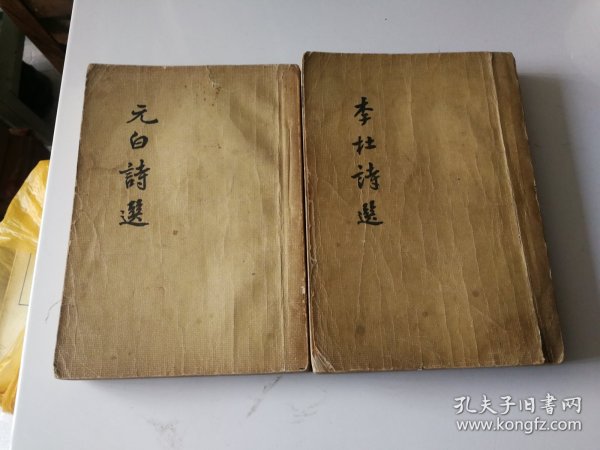 元白詩選
李杜詩選
孔夫子旧書网
www.kongfz.com